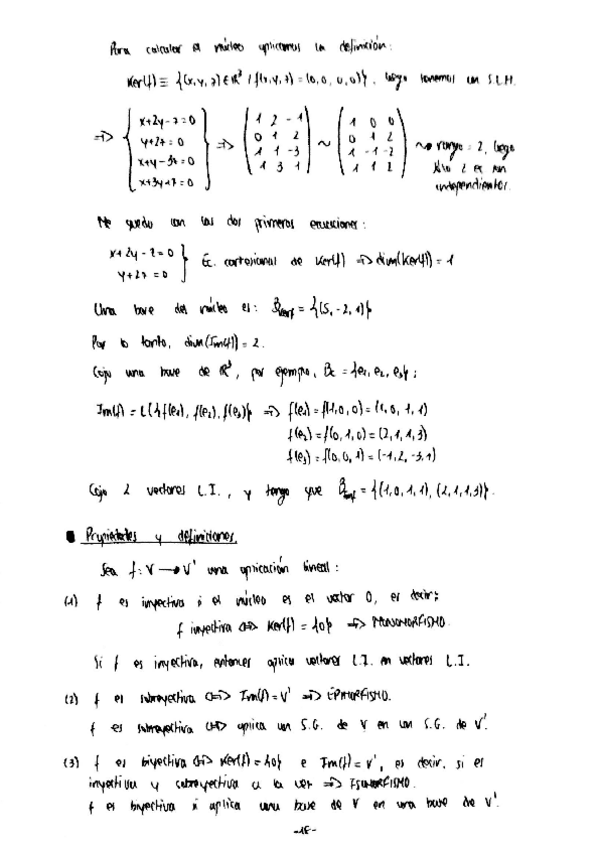 Para calcular el núcleo aplicamos la definición:
Ker(f) ≡ {(x,y,z) ∈ ℝ³ / f(x,y,z) = (0,0,0,0)}, luego tenemos un S.L.H.
=> { x+2y-z=0
y+2z=0
x+y-3z=0
x+3y+z=0 } => ( 1 2 -1
0 1 2
1 1 -3
1 3 1 ) ~ ( 1 0 0
0 1 2
1 -1 -2
1 1 2 ) ~> rango = 2, luego
sólo 2 ec son
independientes.
Me quedo con las dos primeras ecuaciones:
x+2y-z=0
y+2z=0 } Ec. cartesianas de Ker(f) => dim(Ker(f)) = 1
Una base del núcleo es: B_Kerf = {(5,-2,1)}
Por lo tanto, dim(Im(f)) = 2.
Cojo una base de ℝ³, por ejemplo, Bc = {e1, e2, e3};
Im(f) = L({f(e1), f(e2), f(e3)}) => f(e1) = f(1,0,0) = (1,0,1,1)
f(e2) = f(0,1,0) = (2,1,1,3)
f(e3) = f(0,0,1) = (-1,2,-3,1)
Cojo 2 vectores L.I., y tengo que B_Imf = {(1,0,1,1), (2,1,1,3)}.
Propiedades y definiciones.
Sea f: V → V' una aplicación lineal:
(1) f es inyectiva si el núcleo es el vector 0, es decir;
f inyectiva <=> Ker(f) = {0} => MONOMORFISMO.
Si f es inyectiva, entonces aplica vectores L.I. en vectores L.I.
(2) f es subreyectiva <=> Im(f) = V' => EPIMORFISMO.
f es subreyectiva <=> aplica un S.G. de V en un S.G. de V'.
(3) f es biyectiva <=> Ker(f) = {0} e Im(f) = V', es decir, si es
inyectiva y subreyectiva a la vez => ISOMORFISMO.
f es biyectiva si aplica una base de V en una base de V'.
-18-